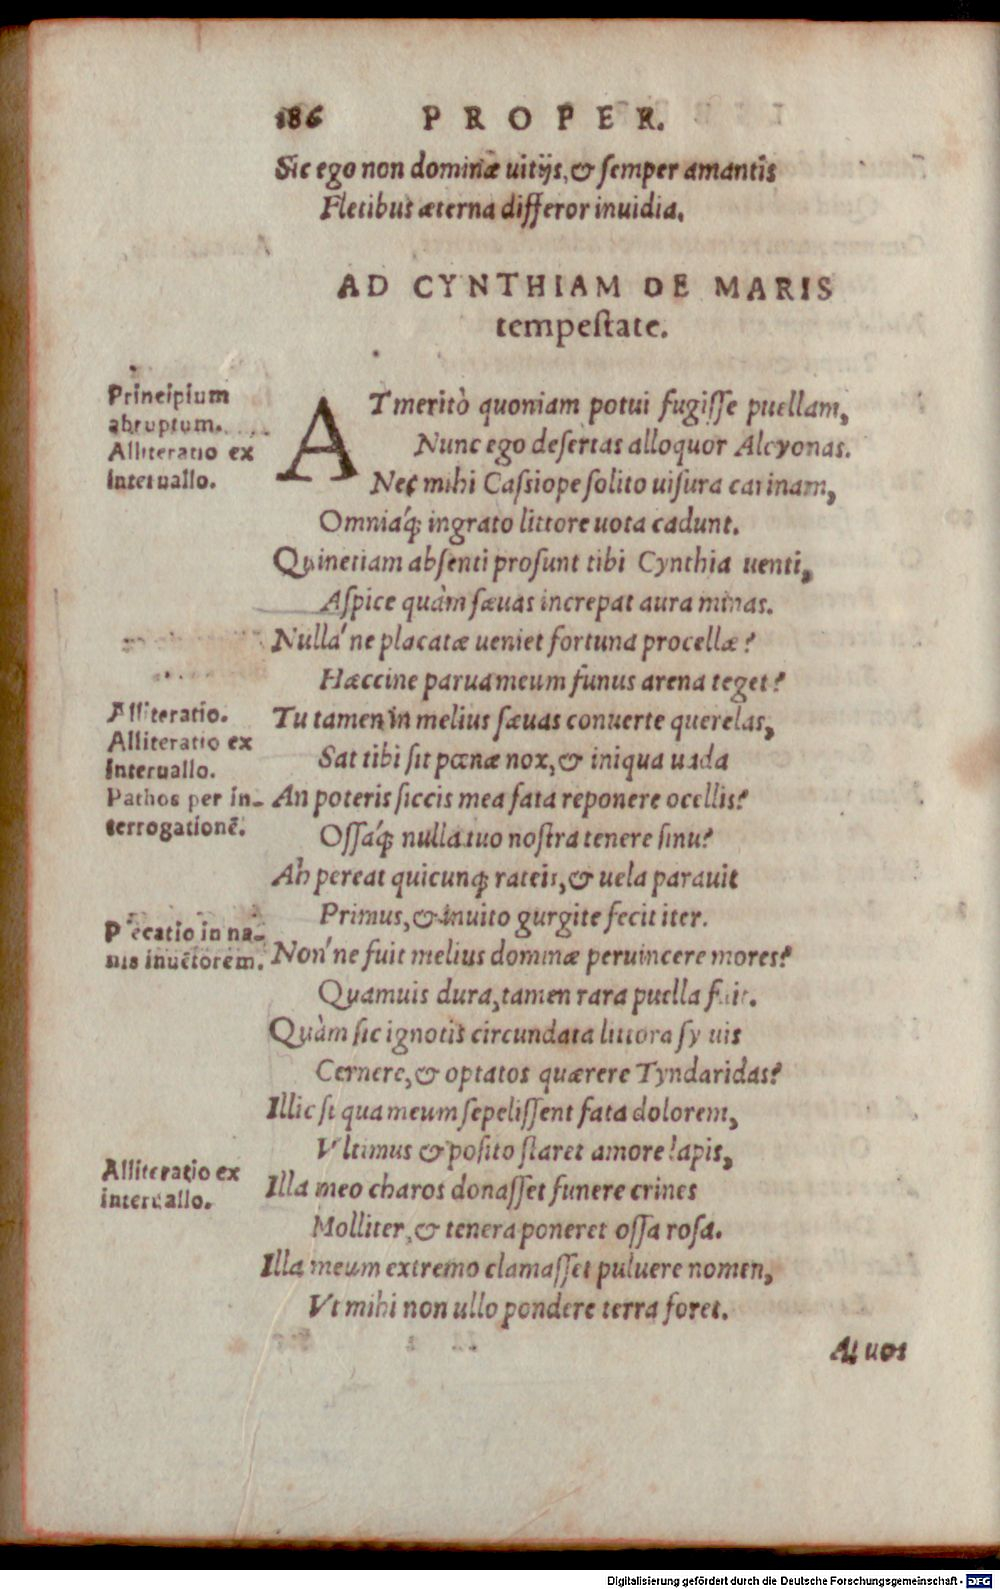 186 PROPER.
Sic ego non dominæ uitijs, & semper amantis
Fletibus æterna differor inuidia.
AD CYNTHIAM DE MARIS
tempestate.
Principium
abruptum.
Alliteratio ex
interuallo.
AT meritò quoniam potui fugisse puellam,
Nunc ego desertas alloquor Alcyonas.
Nec mihi Cassiope solito uisura carinam,
Omniáq; ingrato littore uota cadunt.
Quinetiam absenti prosunt tibi Cynthia uenti,
Aspice quàm sæuas increpat aura minas.
Nullá ne placatæ ueniet fortuna procellæ?
Hæccine parua meum funus arena teget?
Alliteratio.
Alliteratio ex
interuallo.
Pathos per in-
terrogationē.
Tu tamen in melius sæuas conuerte querelas,
Sat tibi sit pœnæ nox, & iniqua uada
An poteris siccis mea fata reponere ocellis?
Ossáq; nulla tuo nostra tenere sinu?
Ah pereat quicunq; rateis, & uela parauit
Primus, & inuito gurgite fecit iter.
Precatio in na-
uis inuētorem.
Non' ne fuit melius dominæ peruincere mores?
Quamuis dura, tamen rara puella fuit.
Quàm sic ignotis circundata littora syluis
Cernere, & optatos quærere Tyndaridas?
Illic si qua meum sepelissent fata dolorem,
Vltimus & posito staret amore lapis,
Alliteratio ex
interuallo.
Illa meo charos donasset funere crines
Molliter, & tenera poneret ossa rosa.
Illa meum extremo clamasset puluere nomen,
Vt mihi non ullo pondere terra foret.
At uos
Digitalisierung gefördert durch die Deutsche Forschungsgemeinschaft - DFG